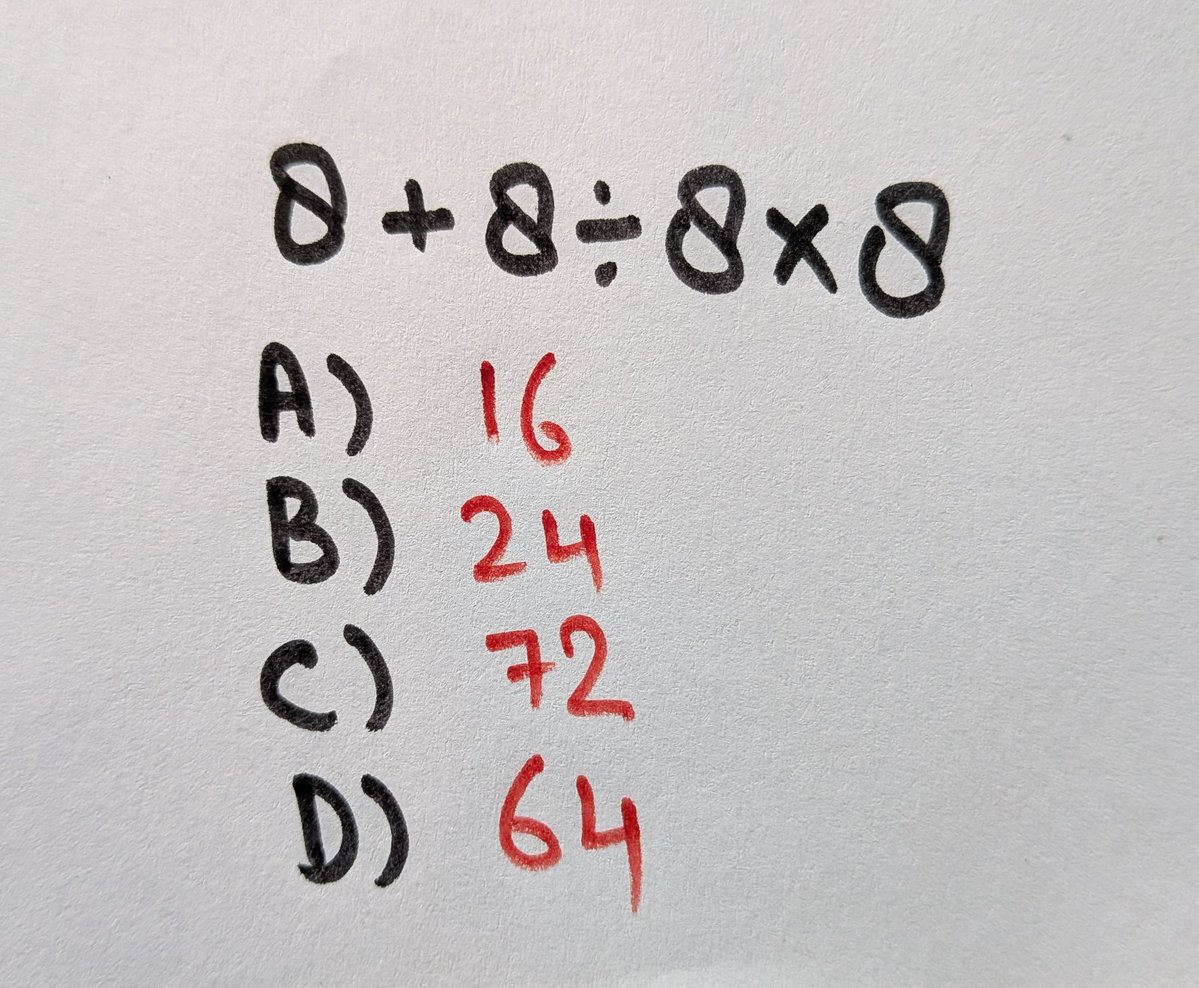 8+8÷8×8
A) 16
B) 24
C) 72
D) 64